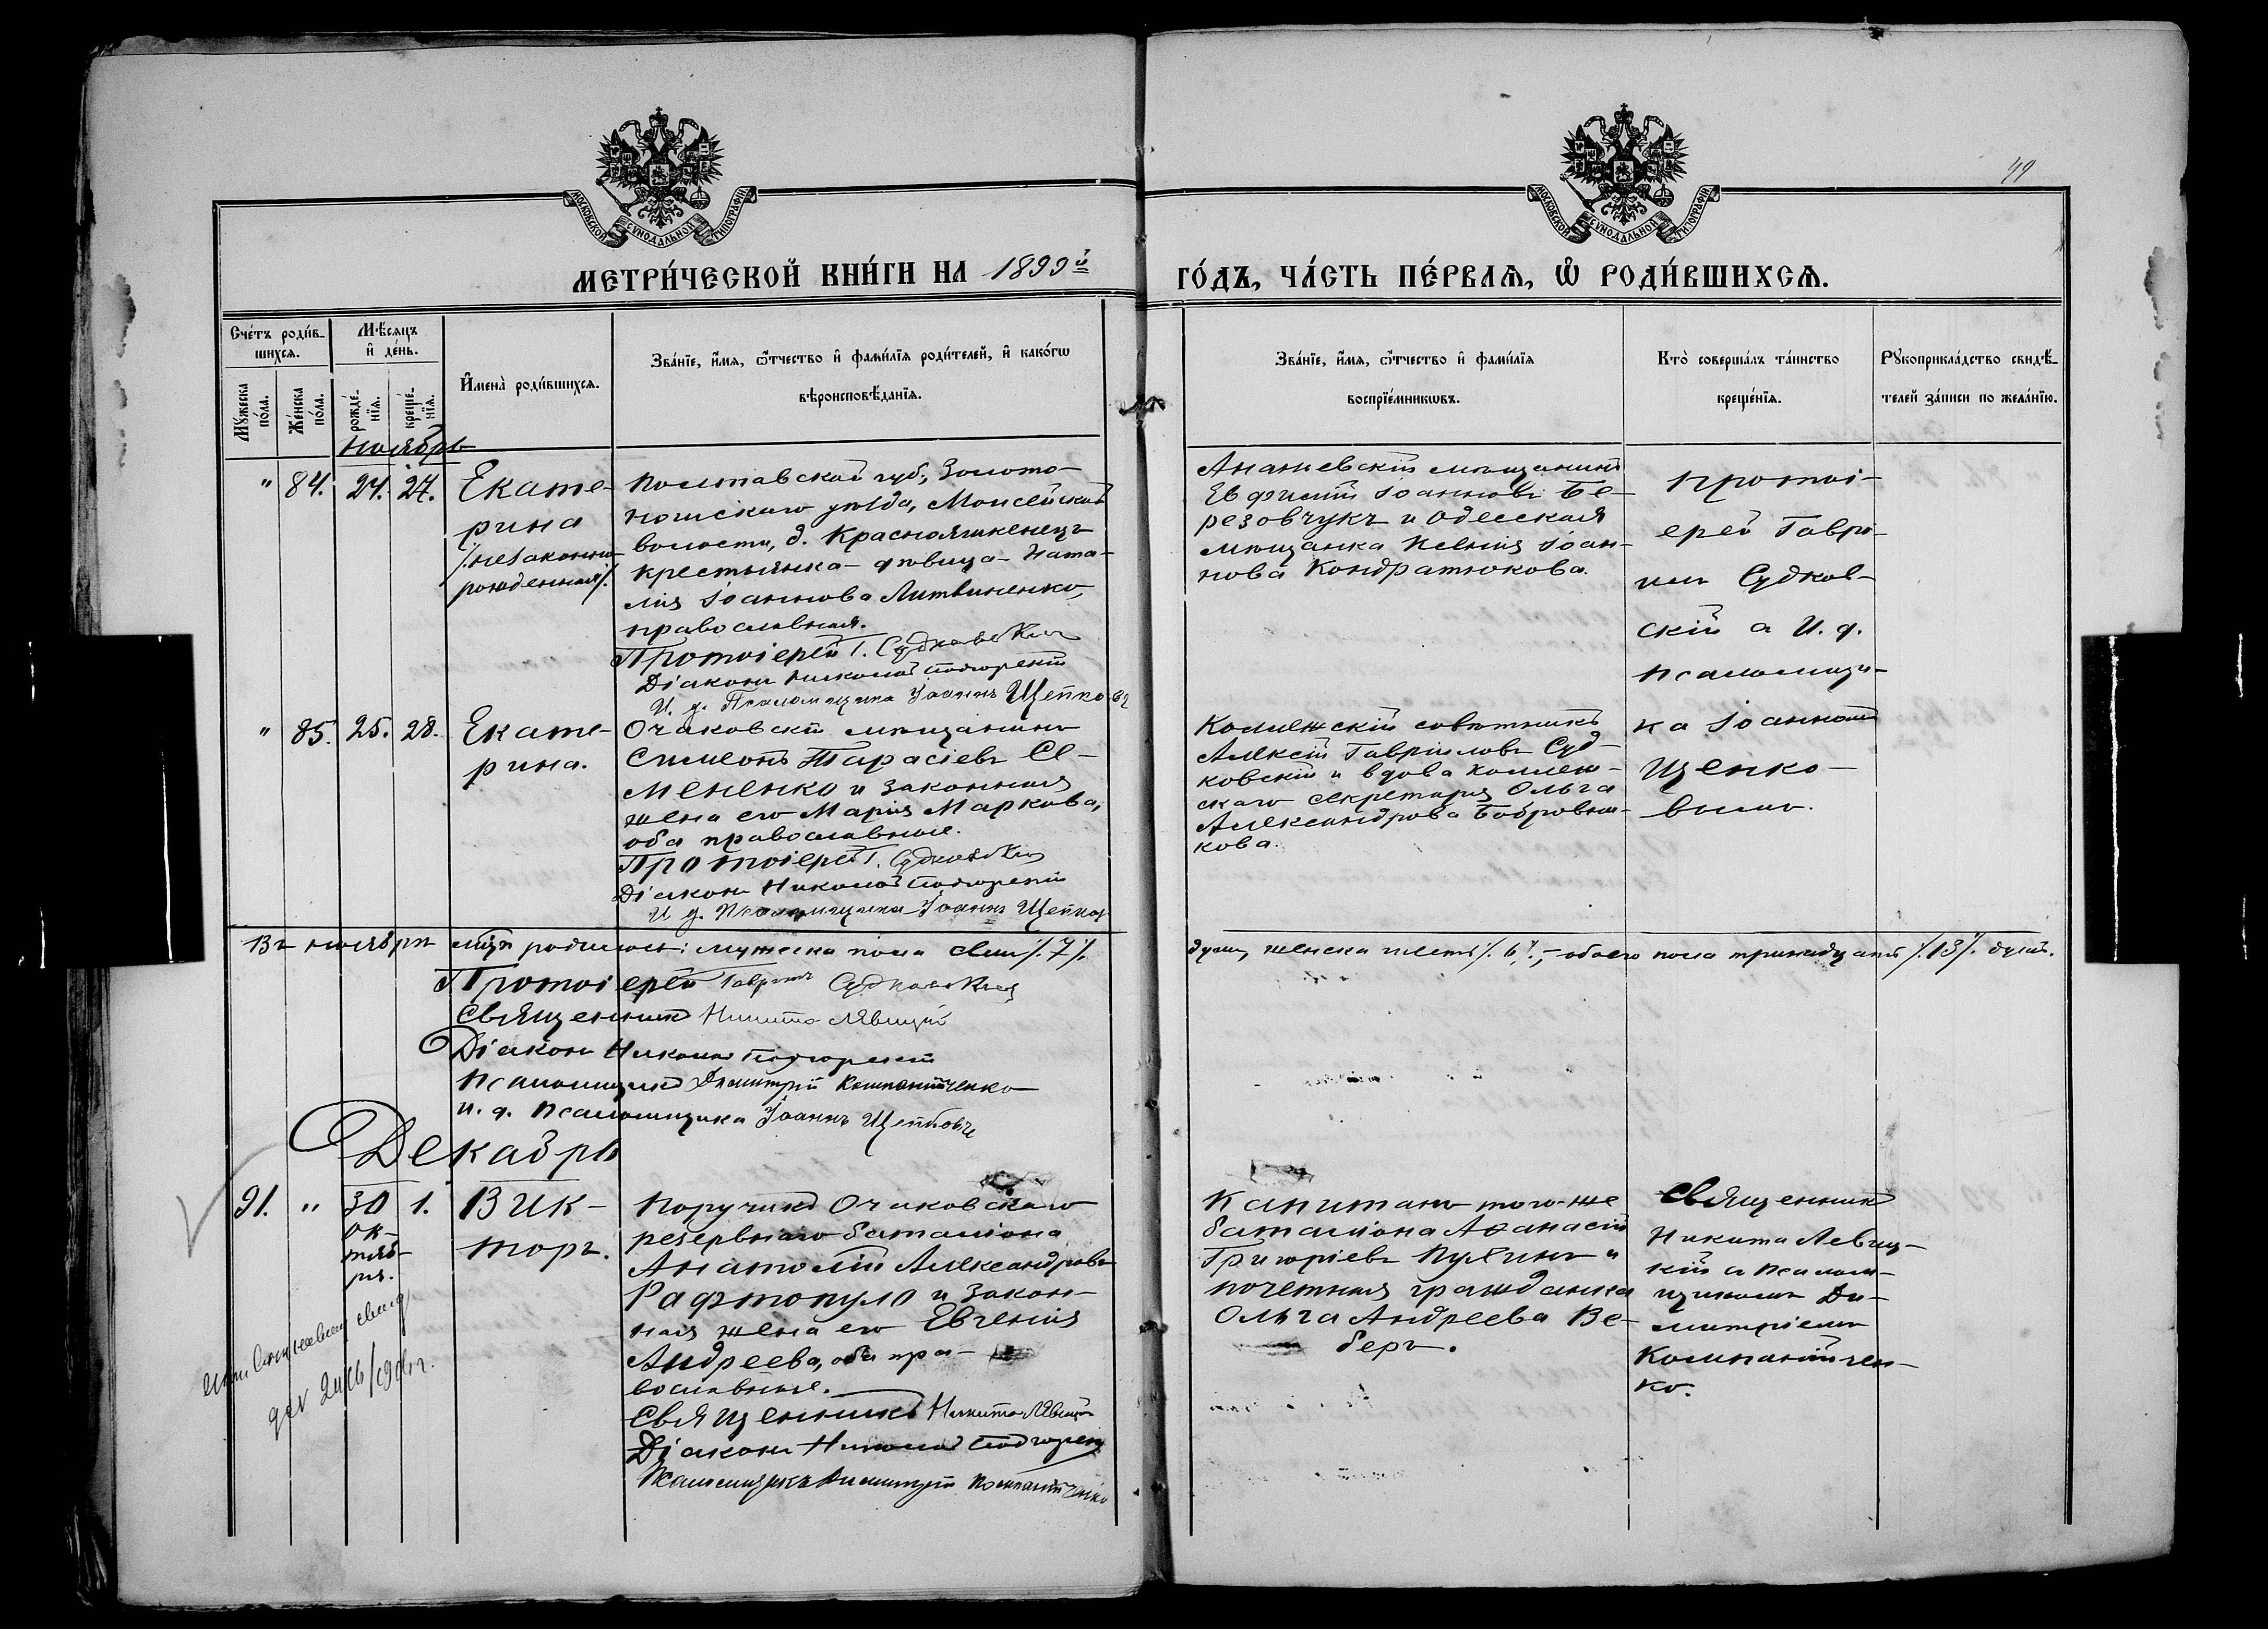 49
МОСКОВСКОЙ СѴНОДАЛЬНОЙ ТИПОГРАФІИ
МОСКОВСКОЙ СѴНОДАЛЬНОЙ ТИПОГРАФІИ
МЕТРИ́ЧЕСКОЙ КНИ́ГИ НА 1899й
ГО́ДЪ, ЧА́СТЬ ПЕ́РВАѦ, Ѽ РОДИ́ВШИХСѦ.
Сче́тъ роди́в-
шихсѧ.
Мѣ́сѧцъ
и҆ де́нь.
Мꙋ́жеска
по́ла.
Же́нска
по́ла.
рожде́-
нїѧ.
креще́-
нїѧ.
И҆мена̀ роди́вшихсѧ.
Зва́нїе, и҆́мѧ, ѻ҆́тчество и҆ фами́лїѧ роди́телей, и҆ како́гѡ
вѣроисповѣ́данїѧ.
Зва́нїе, и҆́мѧ, ѻ҆́тчество и҆ фами́лїѧ
воспрїе́мникѡвъ.
Кто̀ соверша́лъ та́инство
креще́нїѧ.
Рꙋкоприкла́дство свидѣ́-
телей за́писи по жела́нїю.
ноябрь
" 84. 24. 27.
Екате-
рина
/:незаконно-
рожденная:/
Полтавской губ., Золото-
ношскаго уѣзда, Моисейской
волости, д. Краснояшкенецъ
крестьянка - дѣвица - Ната-
лія Іоаннова Литвиненко,
православная.
Протоіерей Г. Судковскій
Діаконъ Николай Подгорскій
И. д. Псаломщика Іоаннъ Щепковъ
Ананьевскій мѣщанинъ
Евфимій Іоанновъ Бе-
резовчукъ и Одесская
мѣщанка Ксенія Іоан-
нова Кондратюкова.
Протоі-
ерей Гаврі-
илъ Судков-
скій с И. д.
псаломщи-
ка Іоанномъ
Щепко-
вымъ.
" 85. 25. 28.
Екате-
рина.
Очаковскій мѣщанинъ
Симеонъ Тарасіевъ Се-
мененко и законная
жена его Марія Маркова,
оба православные.
Протоіерей Г. Судковскій
Діаконъ Николай Подгорскій
И д. Псаломщика Іоаннъ Щепков
Коллежскій совѣтникъ
Алексій Гавріиловъ Суд-
ковскій и вдова коллеж-
скаго секретаря Ольга
Александрова Бобровни-
кова.
Въ ноябрѣ мцѣ родилось: мужеска пола семь /:7:/
душъ, женска шесть /:6:/, - обоего пола тринадцать /:13:/ душъ.
Протоіерей Гавріилъ Судковскій
Священникъ Никита Левицкій
Діаконъ Николай Подгорскій
Псаломщикъ Димитрій Компанійченко
и. д. Псаломщика Іоаннъ Щепковъ
Декабрь
91. " 30 1.
ок-
тяб-
ря.
Вик-
торъ.
Поручикъ Очаковскаго
резервнаго баталіона
Анатолій Александровъ
Рафтопуло и закон-
ная жена его Евгенія
Андреева, оба пра-
вославные.
Священникъ Никита Левицкій
Діаконъ Николай Подгорск
Псаломщикъ Димитрій Компанійченко
Капитанъ того-же
баталіона Аѳанасій
Григоріевъ Пухинъ и
почетная гражданка
Ольга Андреева Ве-
беръ.
Священникъ
Никита Левиц-
кій с псалом-
щикомъ Ди-
митріемъ
Компанійчен-
ко.